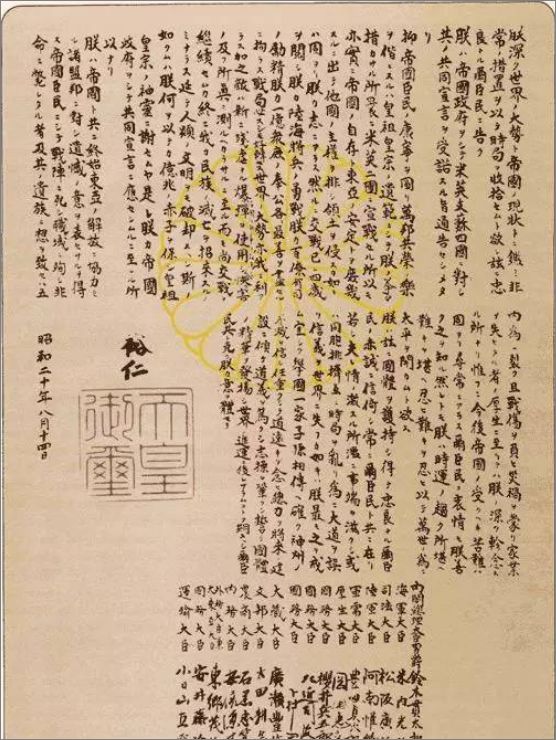 朕深ク世界ノ大勢ト帝國ノ現狀トニ鑑ミ非
常ノ措置ヲ以テ時局ヲ收拾セムト欲シ茲ニ忠
良ナル爾臣民ニ告ク
朕ハ帝國政府ヲシテ米英支蘇四國ニ對シ
其ノ共同宣言ヲ受諾スル旨通告セシメタ
リ
抑帝國臣民ノ康寧ヲ圖リ萬邦共榮ノ樂
ヲ偕ニスルハ皇祖皇宗ノ遺範ニシテ朕ノ拳々
措カサル所曩ニ米英二國ニ宣戰セル所以モ
亦實ニ帝國ノ自存ト東亞ノ安定トヲ庶幾
スルニ出テ他國ノ主權ヲ排シ領土ヲ侵スカ如キ
ハ固ヨリ朕カ志ニアラス然ルニ交戰已ニ四歲
ヲ閱シ朕カ陸海將兵ノ勇戰朕カ百僚有司
ノ勵精朕カ一億衆庶ノ奉公各最善ヲ盡セル
ニ拘ラス戰局必スシモ好轉セス世界ノ大勢亦我ニ利ア
ラス加之敵ハ新ニ殘虐ナル爆彈ヲ使用シ慘害
ノ及フ所眞ニ測ルヘカラサルニ至ル而モ尚交戰ヲ
繼續セムカ終ニ我カ民族ノ滅亡ヲ招來スルノ
ミナラス延テ人類ノ文明ヲモ破却スヘシ斯ノ
如クムハ朕何ヲ以テカ億兆ノ赤子ヲ保シ皇祖
皇宗ノ神靈ニ謝セムヤ是レ朕カ帝國
政府ヲシテ共同宣言ニ應セシムルニ至レル所
以ナリ
朕ハ帝國ト共ニ終始東亞ノ解放ニ協力セ
ル諸盟邦ニ對シ遺憾ノ意ヲ表セサルヲ得
ス帝國臣民ニシテ戰陣ニ死シ職域ニ殉シ非
命ニ斃レタル者及其ノ遺族ニ想ヲ致セハ五
內爲ニ裂ク且戰傷ヲ負ヒ災禍ヲ蒙リ家業
ヲ失ヒタル者ノ厚生ニ至リテハ朕ノ深ク軫念スル
所ナリ惟フニ今後帝國ノ受クヘキ苦難ハ
固ヨリ尋常ニアラス爾臣民ノ衷情モ朕善
ク之ヲ知ル然レトモ朕ハ時運ノ趨ク所堪ヘ
難キヲ堪ヘ忍ヒ難キヲ忍ヒ以テ萬世ノ爲ニ
太平ヲ開カムト欲ス
朕ハ茲ニ國體ヲ護持シ得テ忠良ナル爾臣
民ノ赤誠ニ信倚シ常ニ爾臣民ト共ニ在リ
若シ夫レ情ノ激スル所濫ニ事端ヲ滋クシ或
ハ同胞排擠互ニ時局ヲ亂リ爲ニ大道ヲ誤
リ信義ヲ世界ニ失フカ如キハ朕最モ之ヲ戒
ム宜シク擧國一家子孫相傳ヘ確ク神州ノ
不滅ヲ信シ任重クシテ道遠キヲ念ヒ總力ヲ將來ノ建
設ニ傾ケ道義ヲ篤クシ志操ヲ鞏クシ誓テ國體
ノ精華ヲ發揚シ世界ノ進運ニ後レサラムコトヲ期スヘシ爾臣
民其レ克ク朕カ意ヲ體セヨ
裕仁
天皇
御璽
昭和二十年八月十四日
內閣總理大臣男爵鈴木貫太郎
海軍大臣 米內光
司法大臣 松阪廣
陸軍大臣 阿南惟幾
軍需大臣 豊田貞次
厚生大臣 岡田忠
國務大臣 櫻井兵五郎
國務大臣 左近司
國務大臣 下村
大藏大臣 廣瀨豊
文部大臣 太田耕
農商大臣 石黑忠
內務大臣 安倍源
外務大臣兼
大東亞大臣 東鄉茂
國務大臣 安井藤
運輸大臣 小日山直